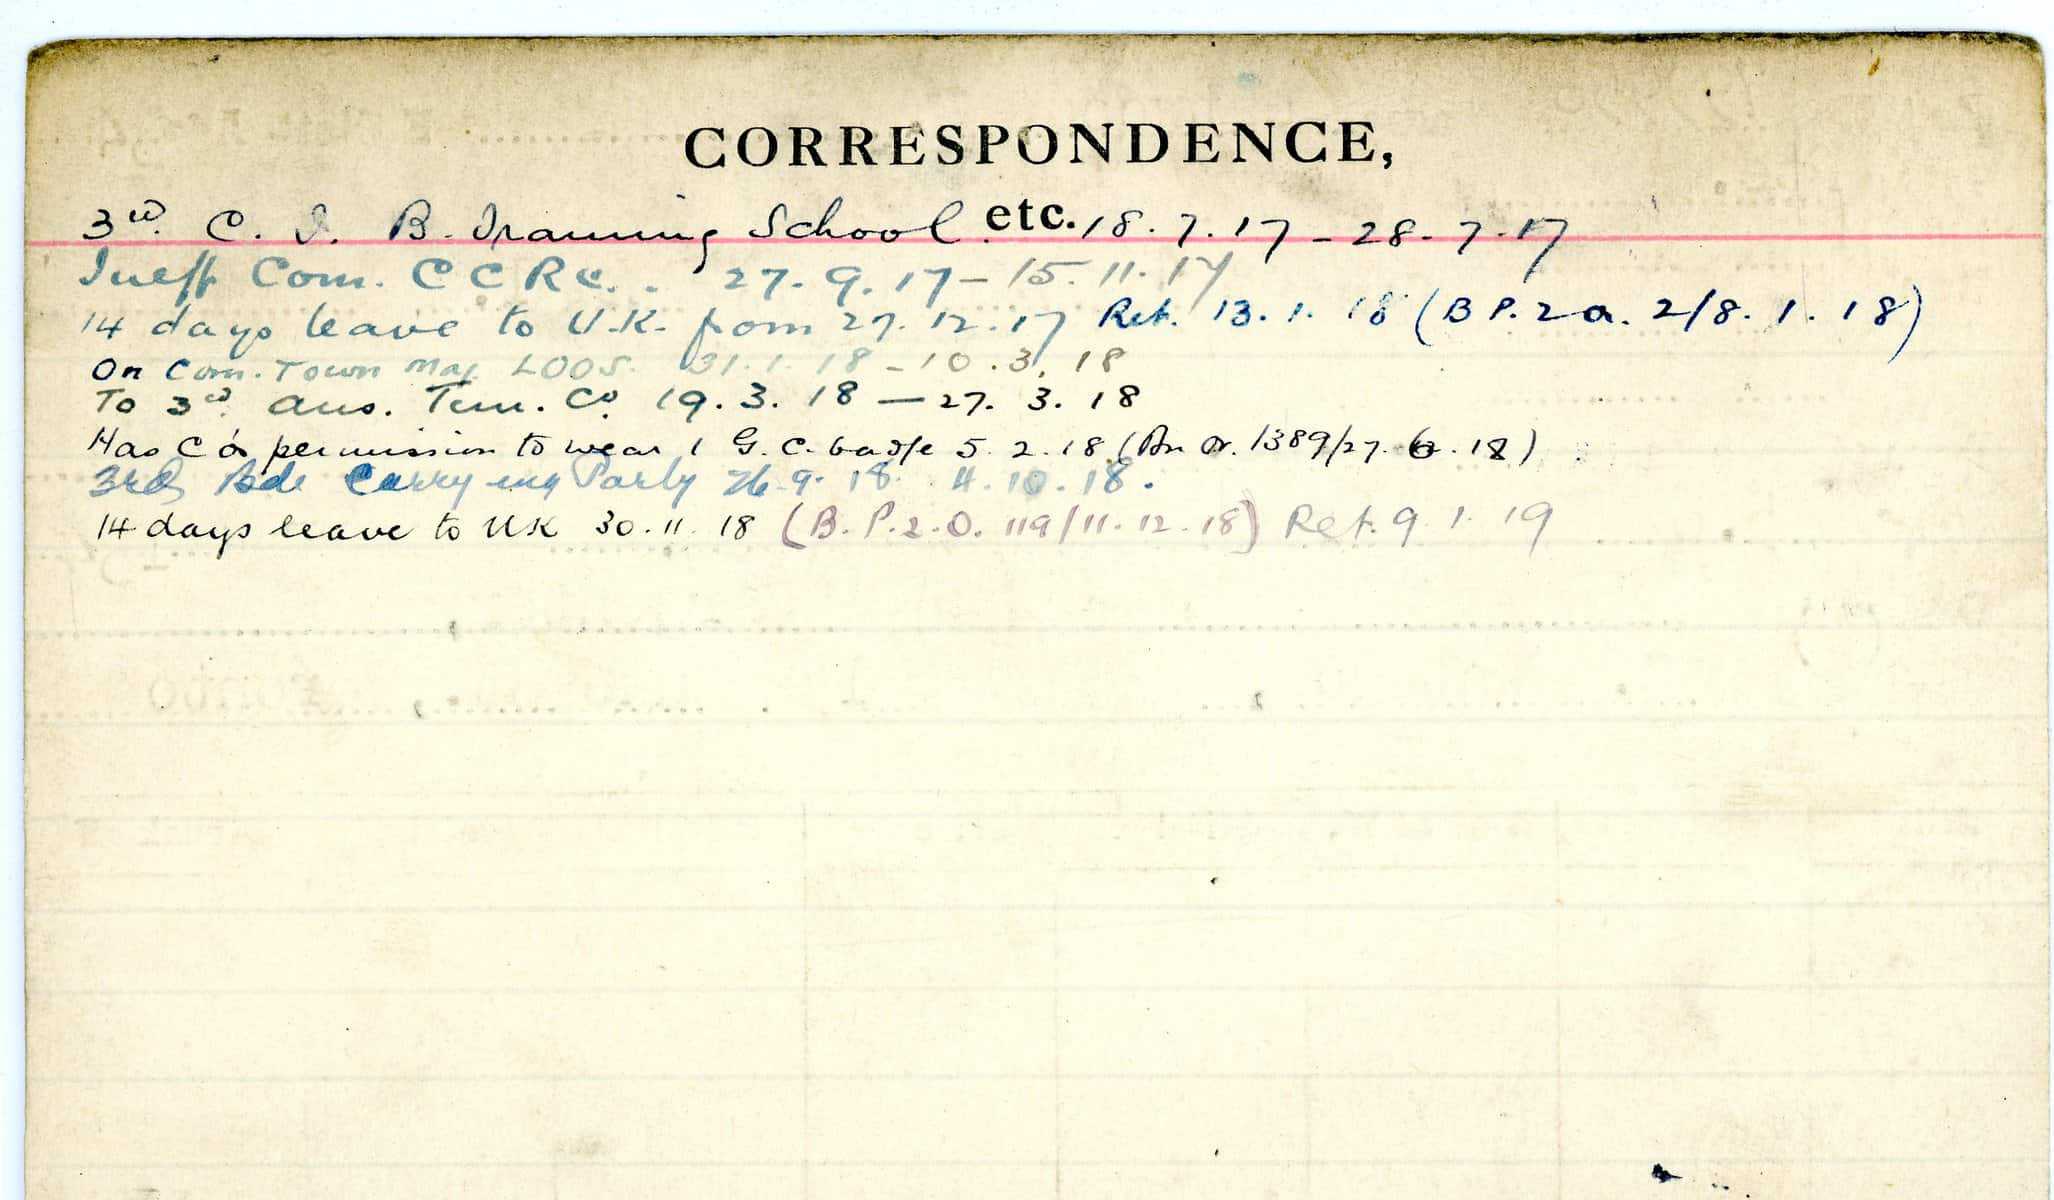 CORRESPONDENCE,
etc.
3rd. C. I. B. Training School 18.7.17 - 28.7.17
Ineff Com. CCRC. 27.9.17 - 15.11.17
14 days leave to U.K. from 27.12.17 Ret. 13.1.18 (B P. 2 a. 2/8.1.18)
On Com. Town Maj. LOOS. 31.1.18 - 10.3.18
To 3rd. Aus. Tun. Co. 19.3.18 — 27.3.18
Has C O's permission to wear 1 G.C. badge 5.2.18 (Bn Or. 1389/27.6.18)
3rd Bde Carrying Party 26.9.18. 4.10.18.
14 days leave to UK 30.11.18 (B.P.2.O. 119/11.12.18) Ret. 9.1.19